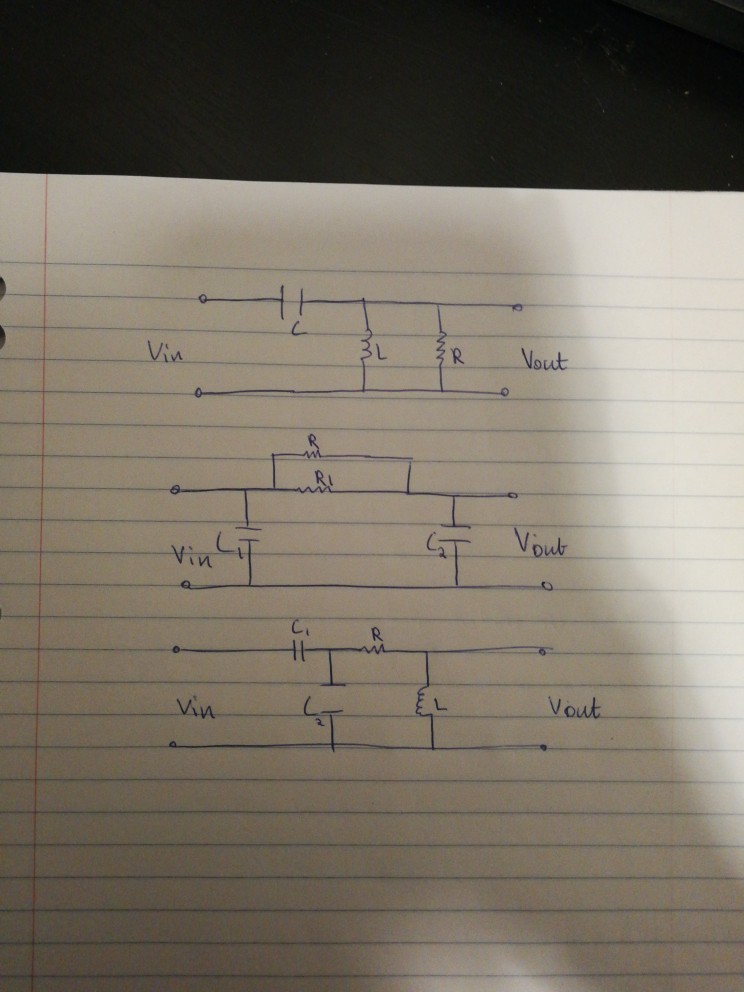 C
Vin L R Vout
R
R1
Vin C1 C2 Vout
C1 R
Vin C2 L Vout